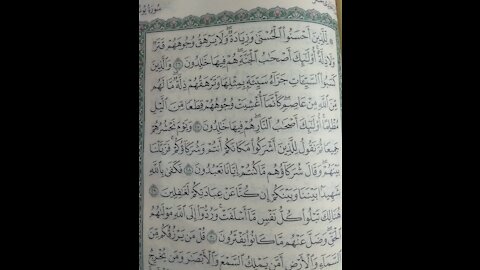 سُورَةُ يُونُسَ
لِّلَّذِينَ أَحْسَنُوا۟ ٱلْحُسْنَىٰ وَزِيَادَةٌ ۖ وَلَا يَرْهَقُ وُجُوهَهُمْ قَتَرٌ
وَلَا ذِلَّةٌ ۚ أُو۟لَـٰٓئِكَ أَصْحَـٰبُ ٱلْجَنَّةِ ۖ هُمْ فِيهَا خَـٰلِدُونَ ٢٦ وَٱلَّذِينَ
كَسَبُوا۟ ٱلسَّيِّـَٔاتِ جَزَآءُ سَيِّئَةٍۭ بِمِثْلِهَا وَتَرْهَقُهُمْ ذِلَّةٌ ۖ مَّا لَهُم
مِّنَ ٱللَّهِ مِنْ عَاصِمٍ ۖ كَأَنَّمَآ أُغْشِيَتْ وُجُوهُهُمْ قِطَعًا مِّنَ ٱلَّيْلِ
مُظْلِمًا ۚ أُو۟لَـٰٓئِكَ أَصْحَـٰبُ ٱلنَّارِ ۖ هُمْ فِيهَا خَـٰلِدُونَ ٢٧ وَيَوْمَ نَحْشُرُهُمْ
جَمِيعًا ثُمَّ نَقُولُ لِلَّذِينَ أَشْرَكُوا۟ مَكَانَكُمْ أَنتُمْ وَشُرَكَآؤُكُمْ ۚ فَزَيَّلْنَا
بَيْنَهُمْ ۖ وَقَالَ شُرَكَآؤُهُم مَّا كُنتُمْ إِيَّانَا تَعْبُدُونَ ٢٨ فَكَفَىٰ بِٱللَّهِ
شَهِيدًۢا بَيْنَنَا وَبَيْنَكُمْ إِن كُنَّا عَنْ عِبَادَتِكُمْ لَغَـٰفِلِينَ ٢٩
هُنَالِكَ تَبْلُوا۟ كُلُّ نَفْسٍ مَّآ أَسْلَفَتْ ۚ وَرُدُّوٓا۟ إِلَى ٱللَّهِ مَوْلَىٰهُمُ
ٱلْحَقِّ ۖ وَضَلَّ عَنْهُم مَّا كَانُوا۟ يَفْتَرُونَ ٣٠ قُلْ مَن يَرْزُقُكُم مِّنَ
ٱلسَّمَآءِ وَٱلْأَرْضِ أَمَّن يَمْلِكُ ٱلسَّمْعَ وَٱلْأَبْصَـٰرَ وَمَن يُخْرِجُ